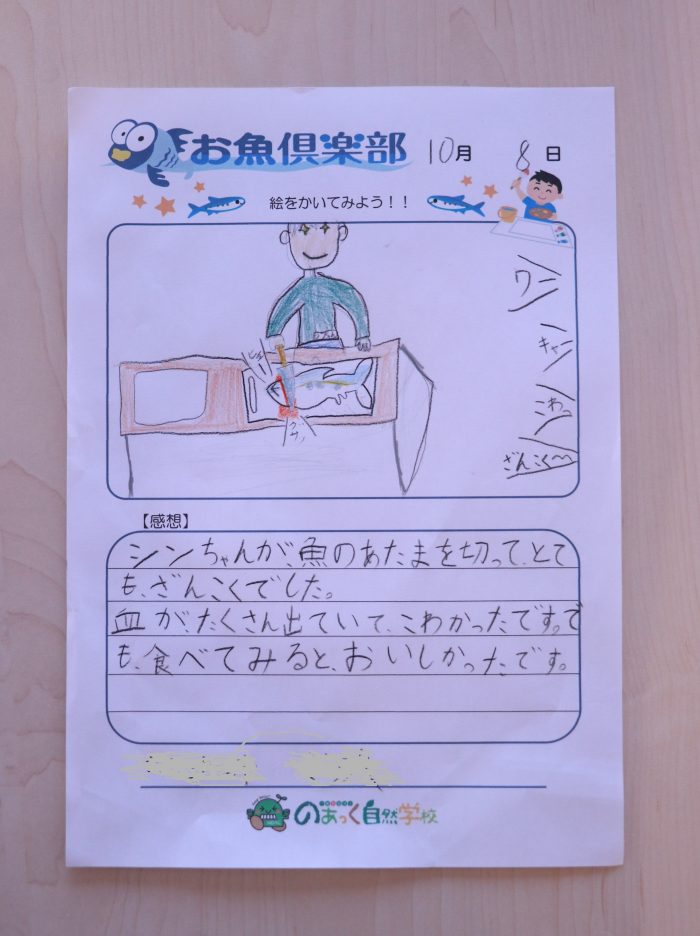 お魚倶楽部 10月 8日
絵をかいてみよう！！
ワー
キャー
こわっ
ざんこく〜
グサッ
【感想】
シンちゃんが、魚のあたまを切って、とて
も、ざんこくでした。
血が、たくさん出ていて、こわかったです。で
も、食べてみると、おいしかったです。
のあっく自然学校